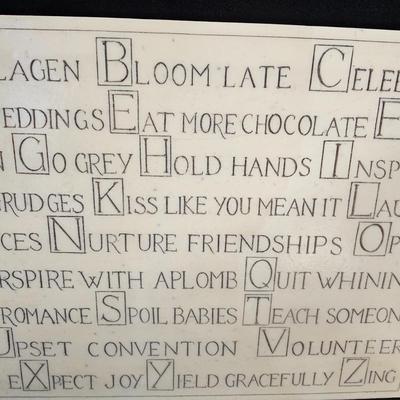 LAGEN BLOOM LATE CELEB
EDDINGS EAT MORE CHOCOLATE E
GO GREY HOLD HANDS INSP
RUDGES KISS LIKE YOU MEAN IT LAU
CES NURTURE FRIENDSHIPS O
RSPIRE WITH APLOMB QUIT WHININ
ROMANCE SPOIL BABIES TEACH SOMEON
UPSET CONVENTION VOLUNTEER
EXPECT JOY YIELD GRACEFULLY ZING